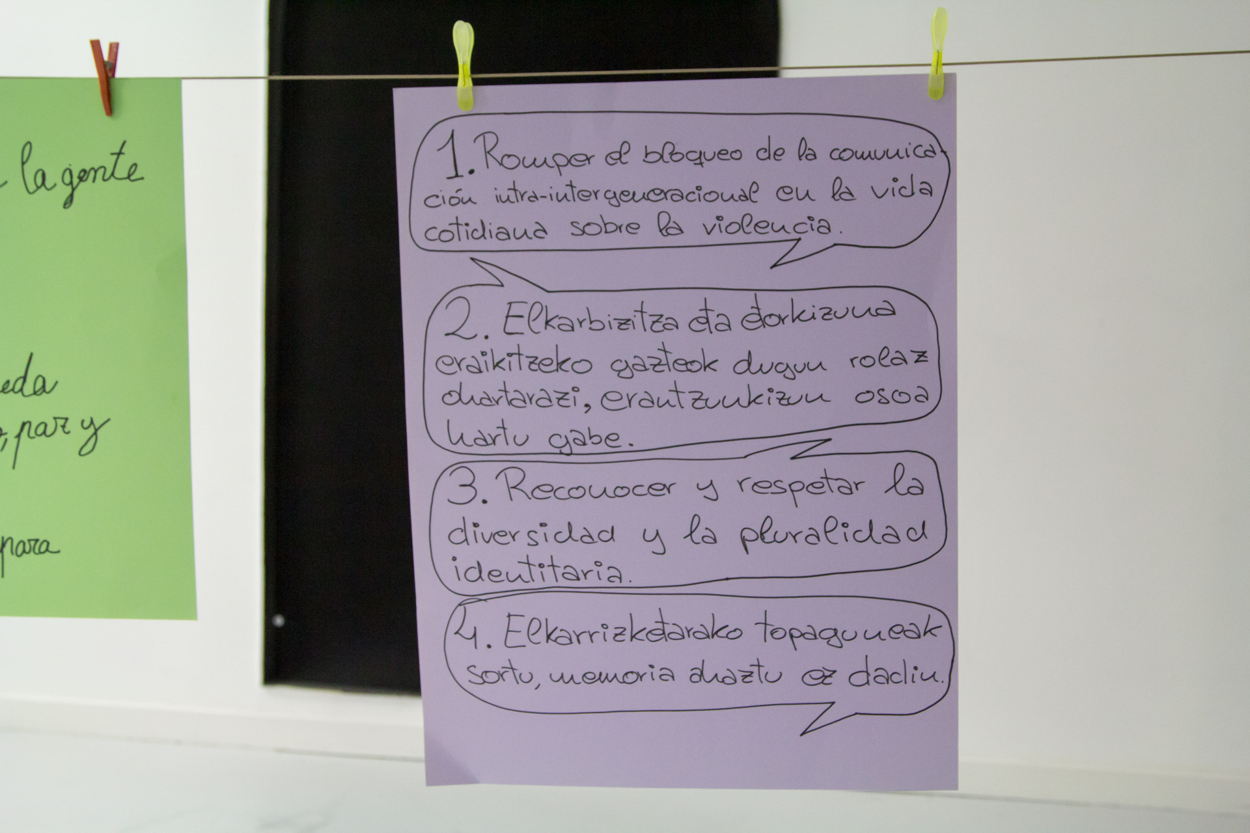 la gente
eda
, paz y
para
1. Romper el bloqueo de la comunica-
ción intra-intergeneracional en la vida
cotidiana sobre la violencia.
2. Elkarbizitza eta etorkizuna
eraikitzeko gazteok dugun rolaz
ohartarazi, erantzunkizun osoa
hartu gabe.
3. Reconocer y respetar la
diversidad y la pluralidad
identitaria.
4. Elkarrizketarako topaguneak
sortu, memoria ahaztu ez dadin.